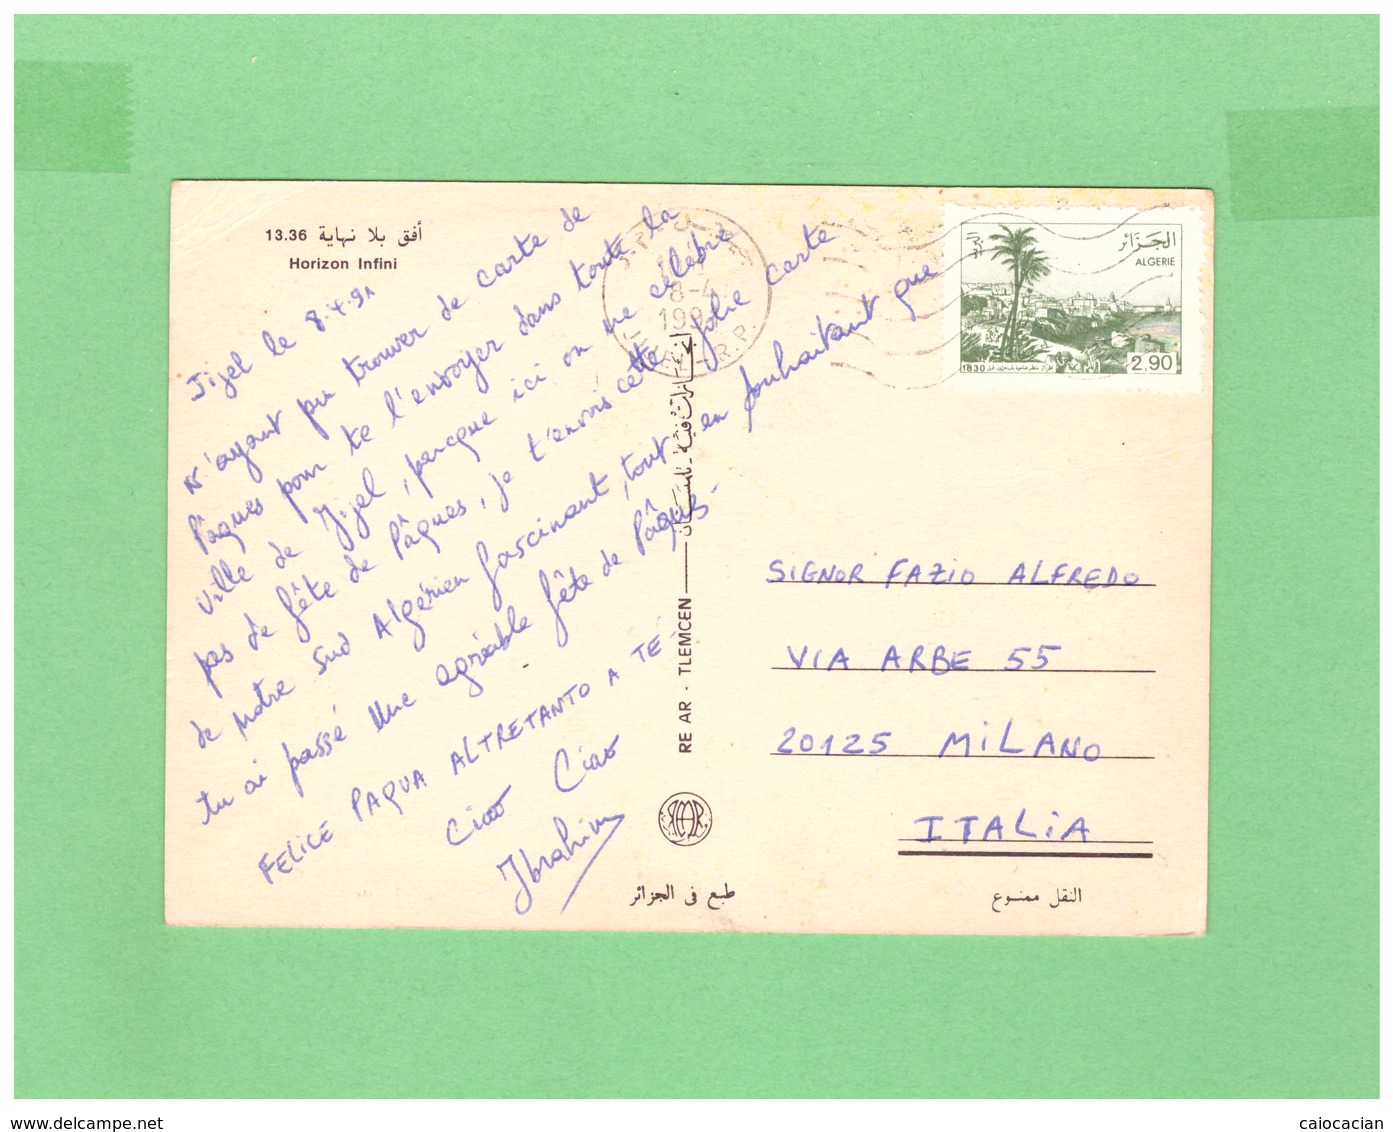 13.36 أفق بلا نهاية
Horizon Infini
Jijel le 8.4.91
N'ayant pu trouver de carte de
Pâques pour te l'envoyer dans toute la
ville de Jijel, parcque ici on ne célèbre
pas de fête de Pâques, je t'envois cette jolie carte
de notre sud Algérien fascinant, tout en souhaitant que
tu ai passé une agréable fête de Pâques-
FELICE PAQUA ALTRETANTO A TÉ-
Ciao Ciao
Ibrahim
8-4
R.P.
RE AR - TLEMCEN
الجزائر
ALGERIE
البريد
1830
2,90
SIGNOR FAZIO ALFREDO
VIA ARBE 55
20125 MILANO
ITALIA
طبع في الجزائر
النقل ممنوع
www.delcampe.net
caiocacian